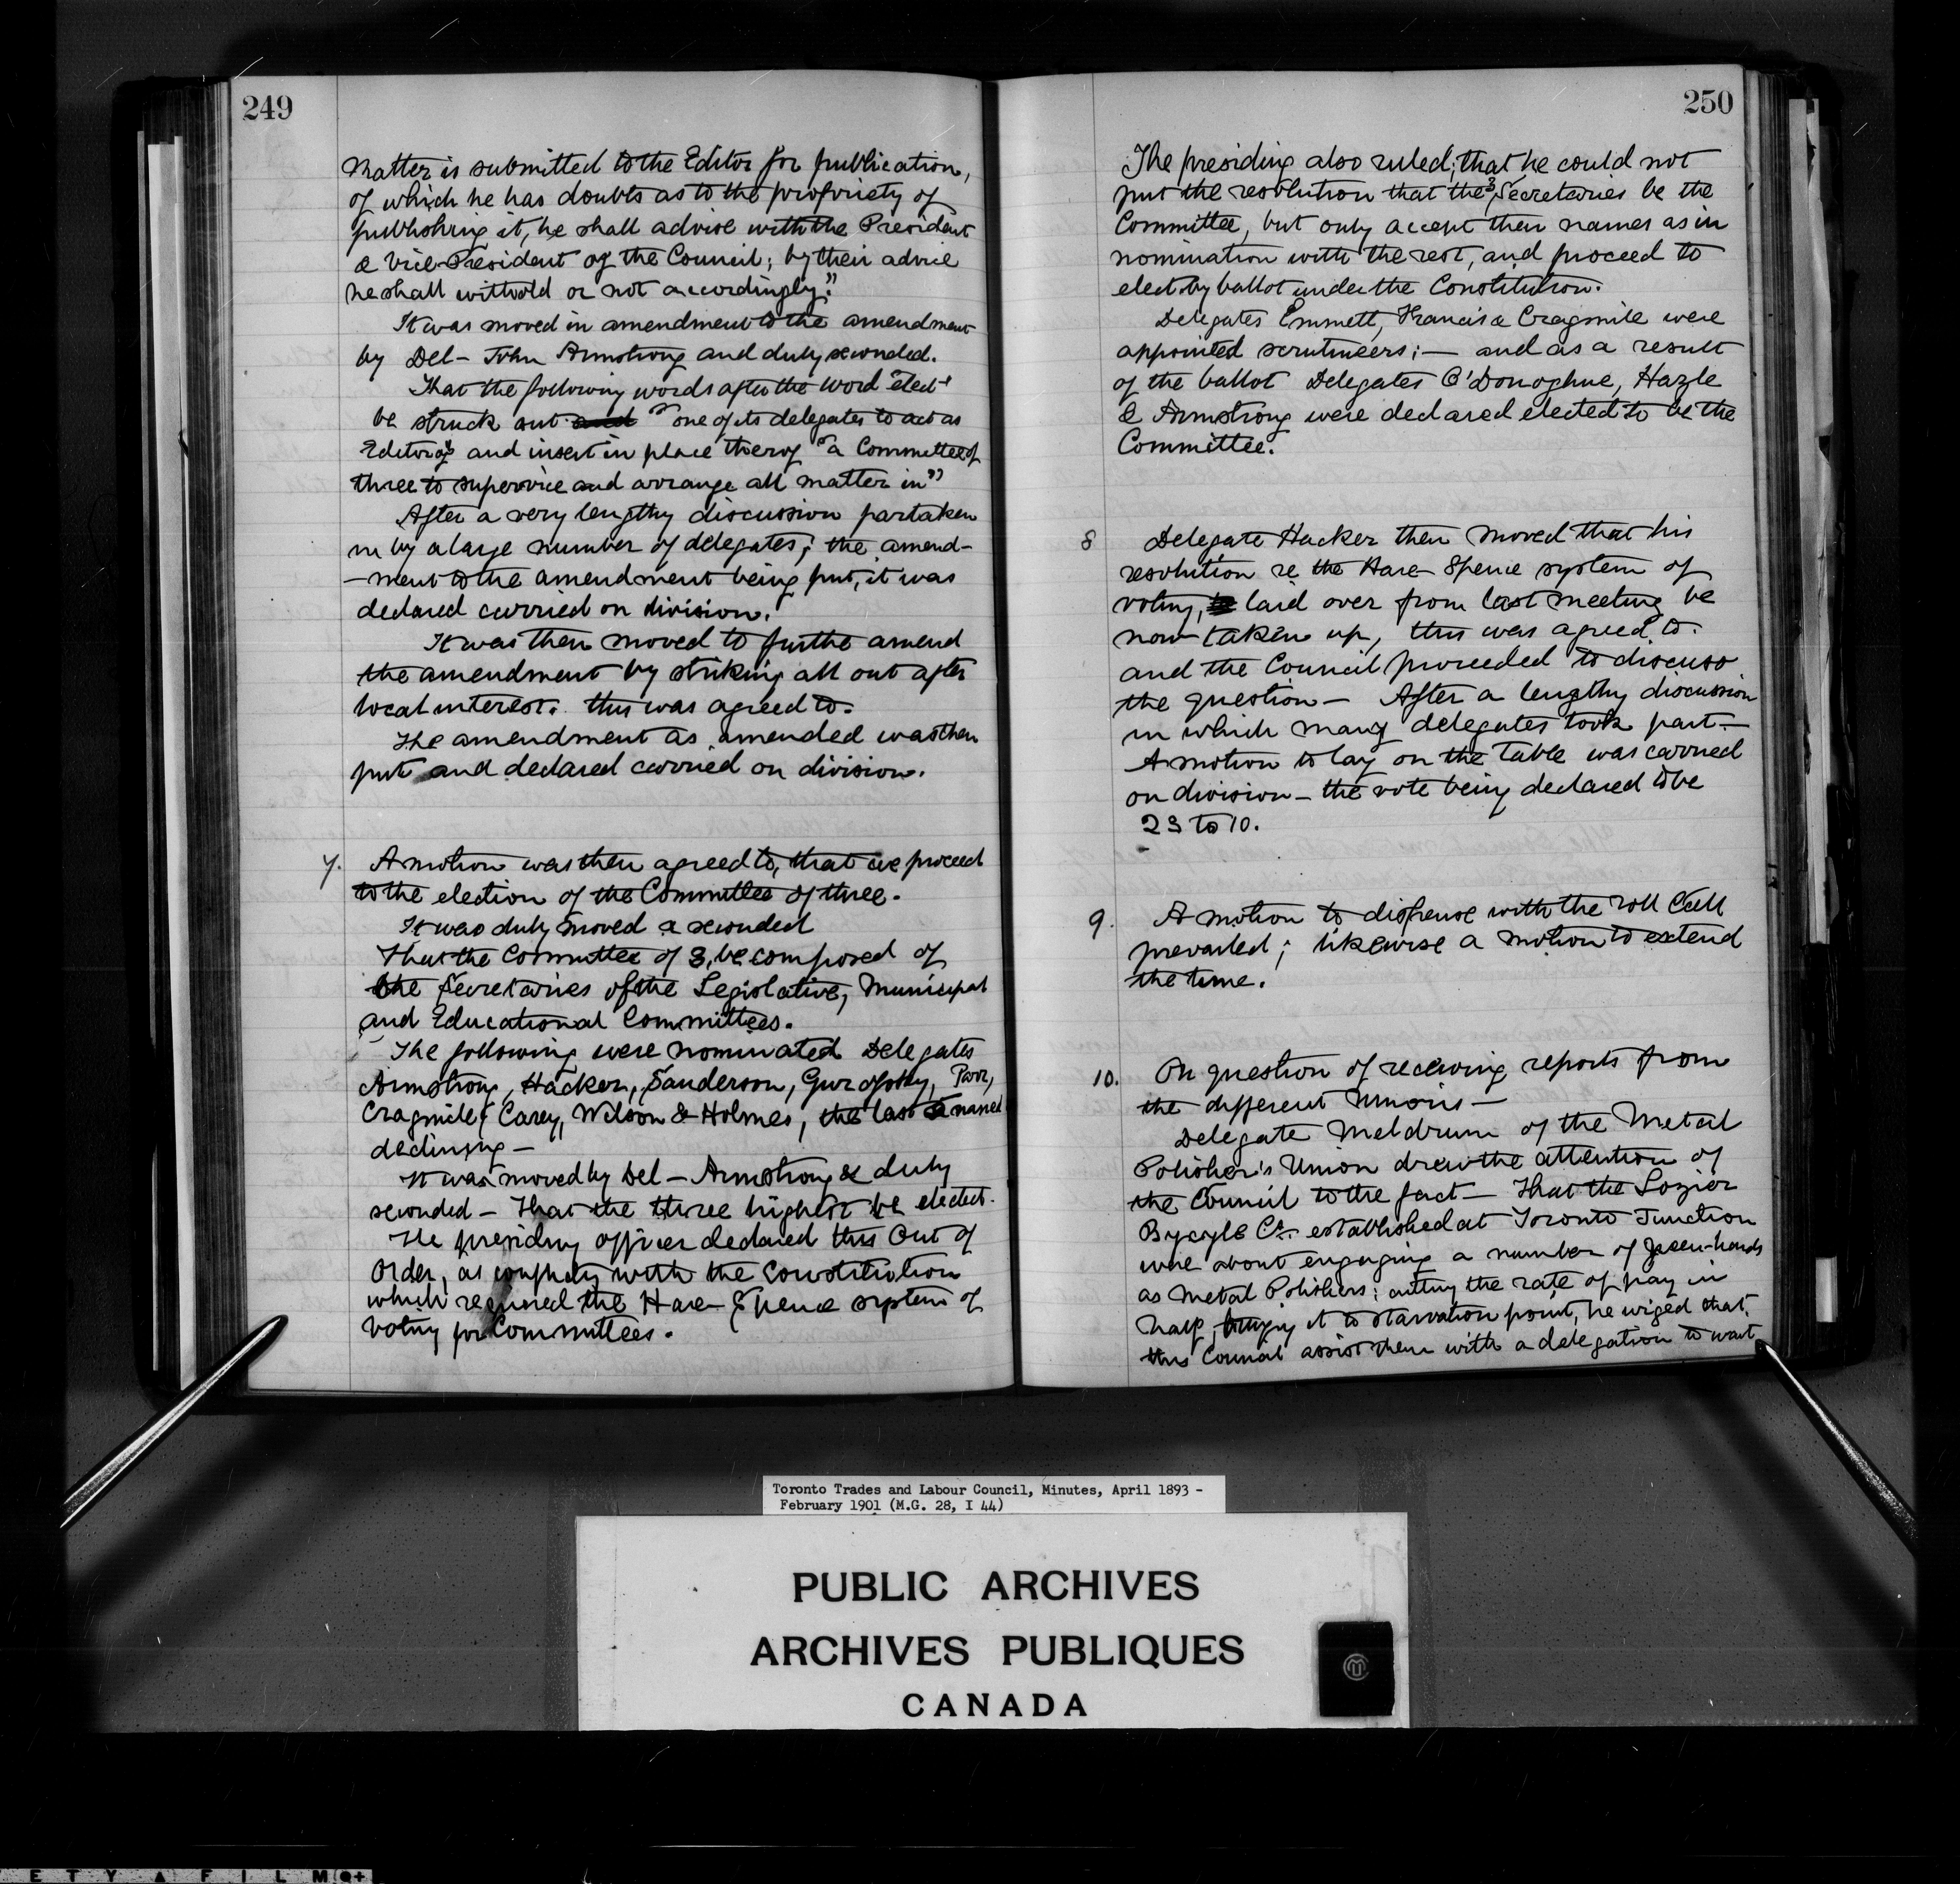 249
Matter is submitted to the Editor for publication,
of which he has doubts as to the propriety of
publishing it, he shall advise with the President
& Vice-President of the Council; by their advice
he shall withold or not accordingly."
It was moved in amendment to the amendment
by Del- John Armstrong and duly seconded.
That the following words after the word "elect"
be struck out "one of its delegates to act as
Editor of" and insert in place therof "a Committee of
three to supervice and arrange all matter in"
After a very lengthy discussion partaken
in by a large number of delegates; the amend-
-ment to the amendment being put, it was
declared carried on division.
It was then moved to furthe amend
the amendment by striking all out after
local interest. this was agreed to.
The amendment as amended was then
put and declared carried on division.
7. A motion was then agreed to, that we proceed
to the election of the Committee of three.
It was duly moved & seconded
That the Committee of 3, be composed of
the Secretaries of the Legislative, Municipal
and Educational Committees.
The following were nominated Delegates
Armstrong, Hacker, Sanderson, Gurofsky,
Cragmile, Carey, Wilson & Holmes, the last named
declining —
It was moved by Del - Armstrong & duly
seconded - That the three highest be elect.
The presiding officer declared this Out of
Order, as conflicty with the Constitution
which required the Hare - Spence system of
Voting for Committees.
250
The presiding also ruled; that he could not
put the resolution that the 3 Secretaries be the
Committee, but only accept their names as in
nomination with the rest, and proceed to
elect by ballot under the Constitution.
Delegates Emmett, Francis & Cragmile were
appointed scrutineers; — and as a result
of the ballot Delegates O'Donoghue, Hazle
& Armstrong were declared elected to be the
Committee.
8 Delegate Hacker then moved that his
resolution re the Hare Spence system of
voting, laid over from last meeting be
now taken up, this was agreed to.
and the Council proceeded to discuss
the question — After a lengthy discussion
in which many delegates took part —
A motion to lay on the table was carried
on division - the vote being declared to be
23 to 10.
9. A motion to dispense with the roll Call
prevailed; likewise a motion to extend
the time.
10. On question of receiving reports from
the different Unions —
Delegate Meldrum of the Metal
Polisher's Union drew the attention of
the Council to the fact — That the Lozier
Bycycle Co. established at Toronto Junction
were about engaging a number of green-hands
as Metal Polishers; cutting the rate of pay in
half, bringing it to starvation point, he urged that
this Council assist them with a delegation to wait
Toronto Trades and Labour Council, Minutes, April 1893 -
February 1901 (M.G. 28, I 44)
PUBLIC ARCHIVES
ARCHIVES PUBLIQUES
CANADA
E T Y A F I L M